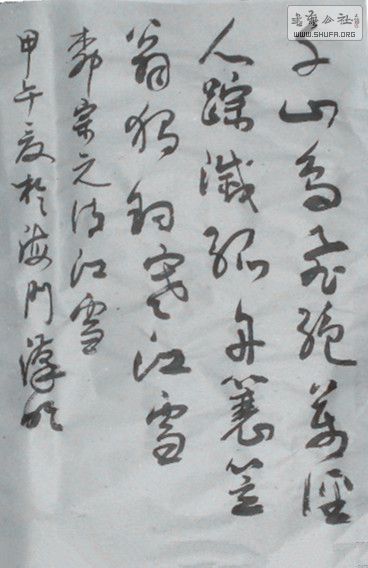 千山鸟飞绝万径
人踪灭孤舟蓑笠
翁独钓寒江雪
柳宗元诗江雪
甲午夏于海门漢
书法公社
WWW.SHUFA.ORG